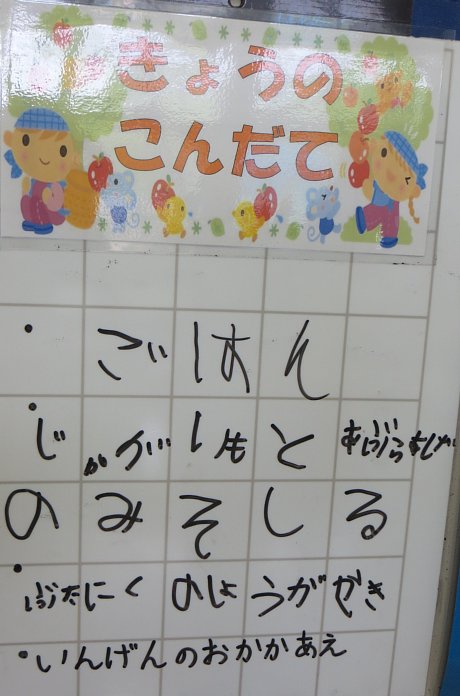 きょうの
こんだて
・ごはん
・じゃがいもと あぶらあげ
のみそしる
・ぶたにくのしょうがやき
・いんげんのおかかあえ